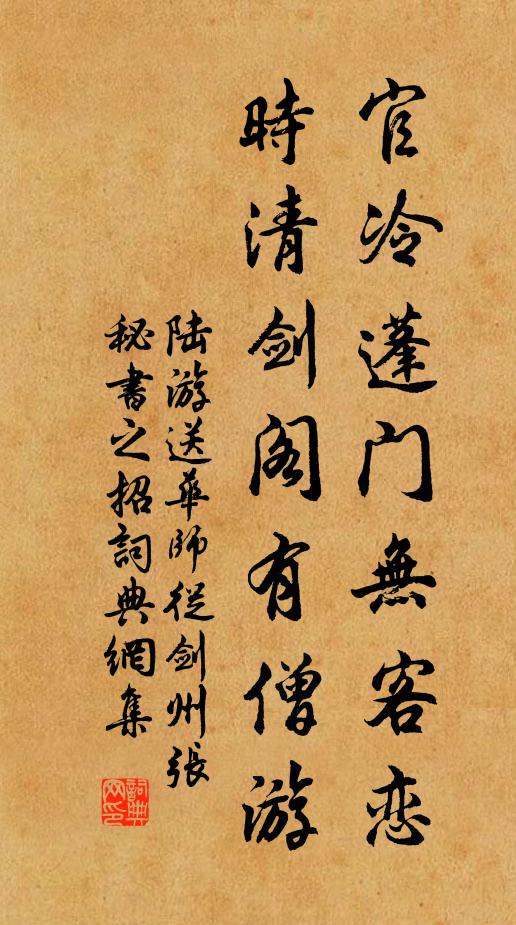 官冷蓬门無客恋
時清剑阁有僧游
陆游送華師從剑州張
秘書之招詞典網集
詞典网印